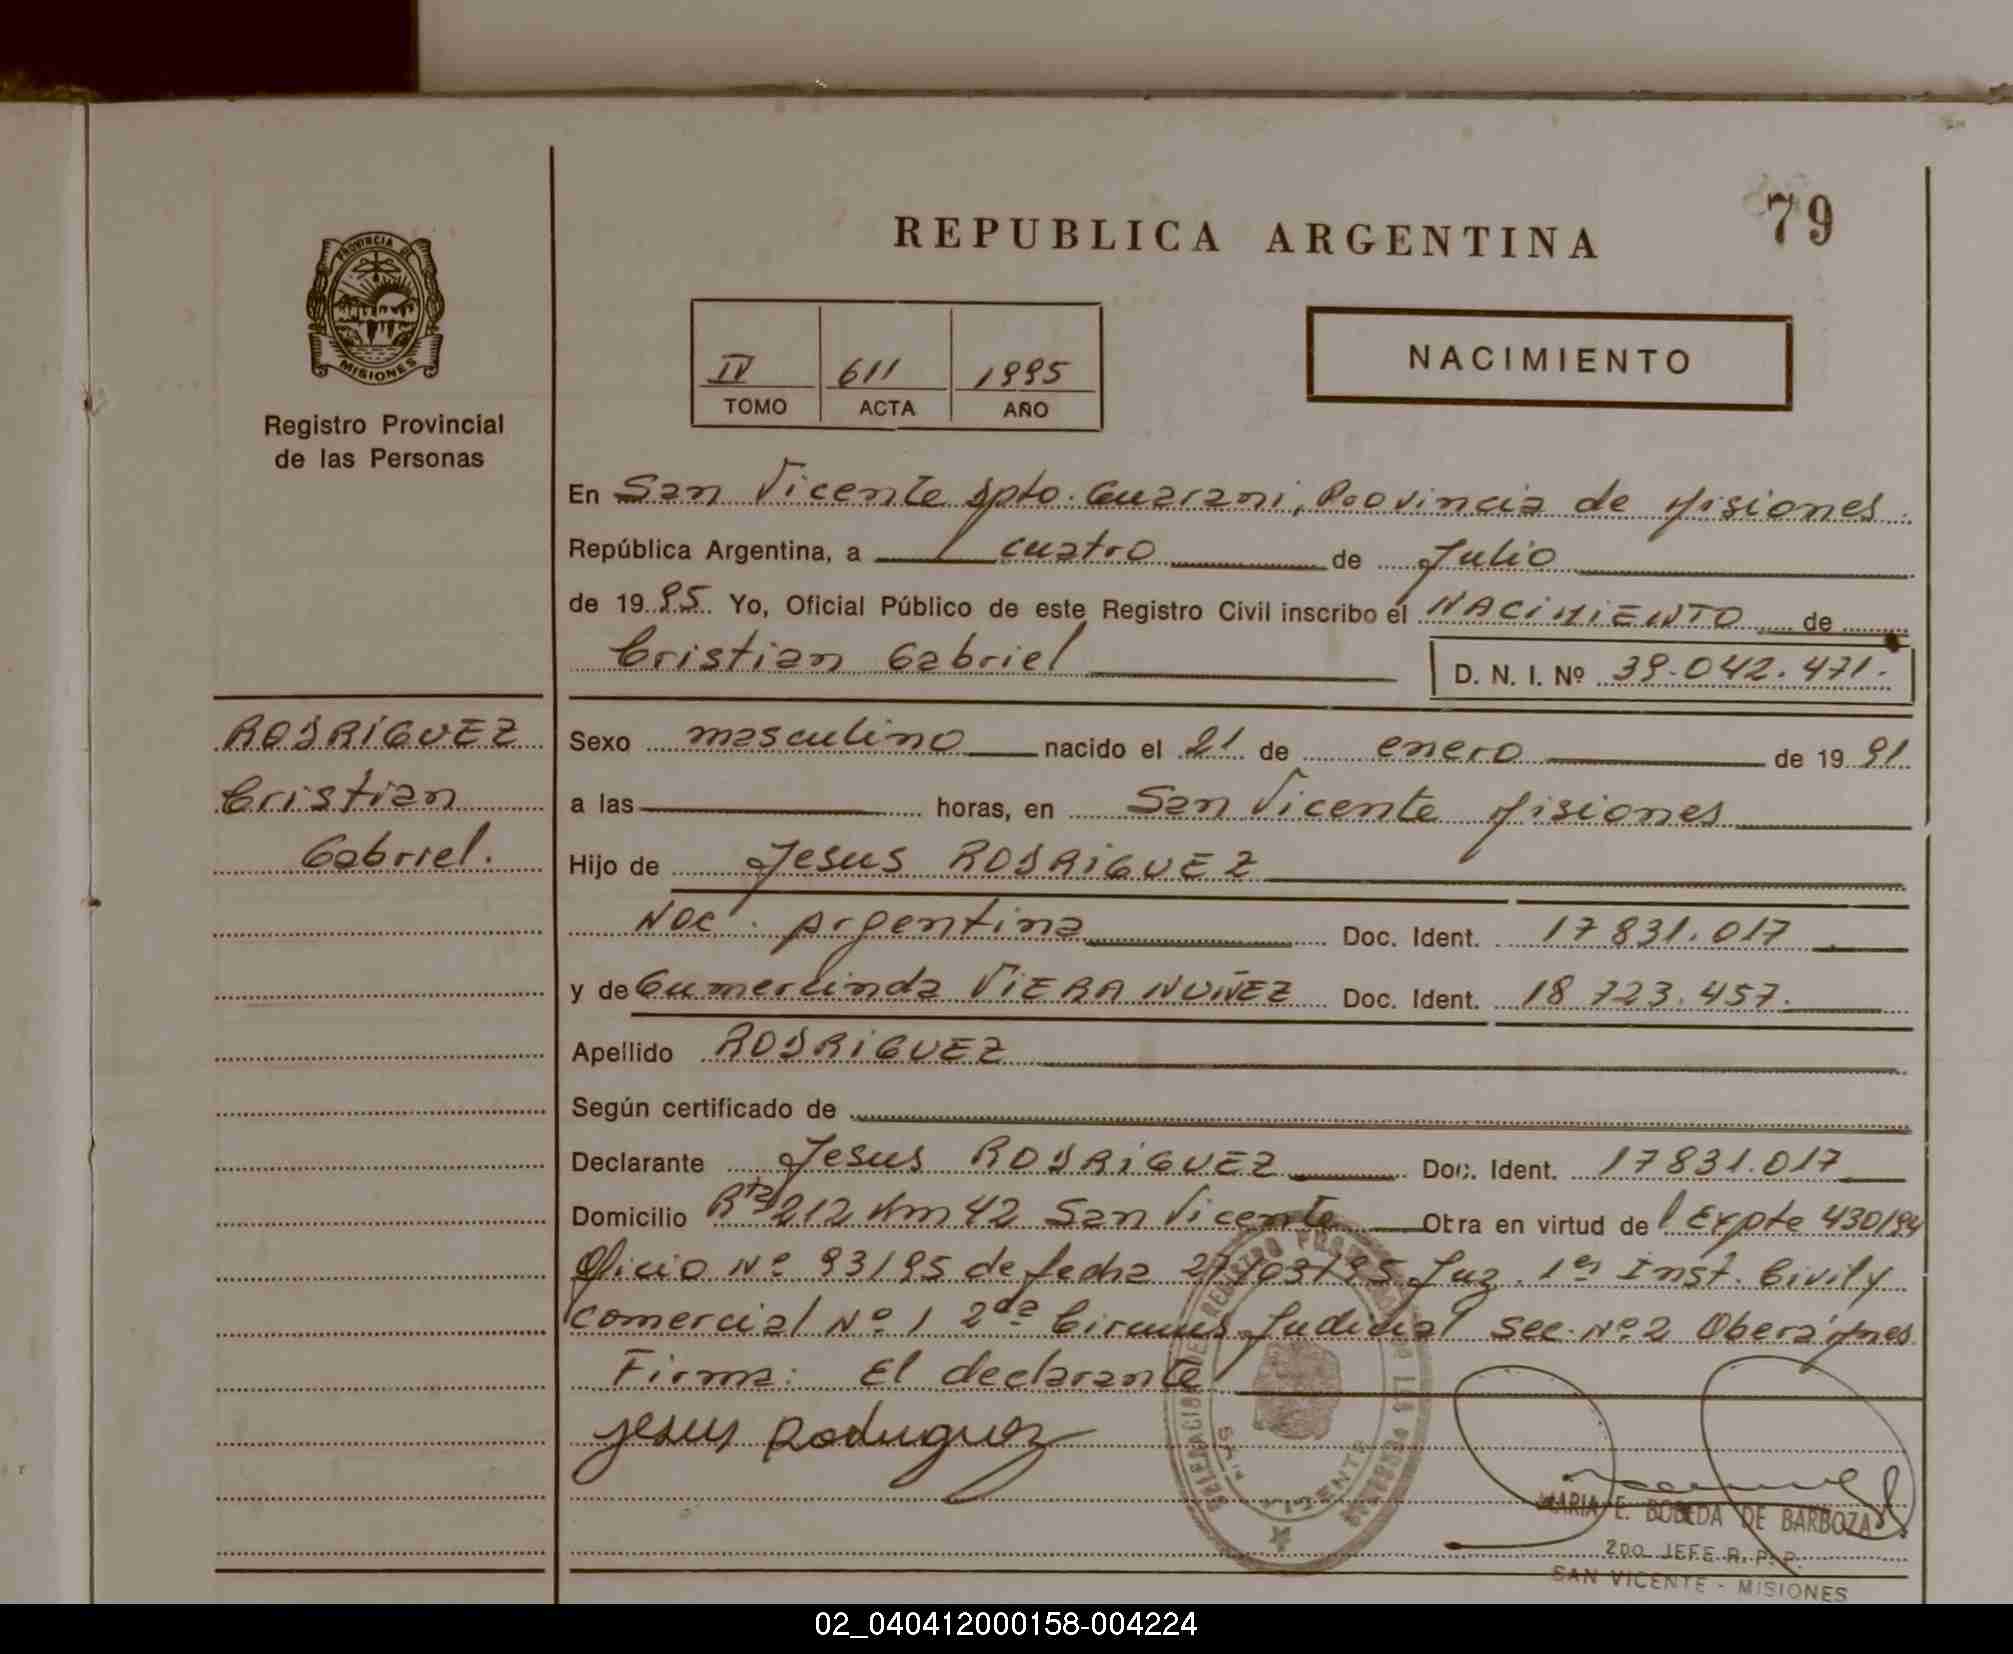 79
REPUBLICA ARGENTINA
PROVINCIA DE
MISIONES
Registro Provincial
de las Personas
IV 611 1995
TOMO ACTA AÑO
NACIMIENTO
En San Vicente Dpto. Guarani, Provincia de Misiones
República Argentina, a cuatro de Julio
de 1995 Yo, Oficial Público de este Registro Civil inscribo el NACIMIENTO de
Cristian Gabriel
D. N. I. Nº 39.042.471.
RODRIGUEZ
Cristian
Gabriel.
Sexo masculino nacido el 21 de enero de 1991
a las horas, en San Vicente Misiones
Hijo de Jesus RODRIGUEZ
Nac. Argentina Doc. Ident. 17831.017
y de Gumercinda VIERA NUÑEZ Doc. Ident. 18723.457.
Apellido RODRIGUEZ
Según certificado de
Declarante Jesus RODRIGUEZ Doc. Ident. 17831.017
Domicilio Rta 212 Km 42 San Vicente Otra en virtud de l Expte 430/94
Oficio Nº 93/95 de fecha 27/03/95 Juz. 1er Inst. Civil y
Comercial Nº 1 2da Circuns. Judicial Sec. Nº 2 Obera Mnes
Firma: El declarante
Jesus Rodriguez
MARIA E. BOBEDA DE BARBOZA
2DO JEFE R. P. P.
SAN VICENTE - MISIONES
02_040412000158-004224